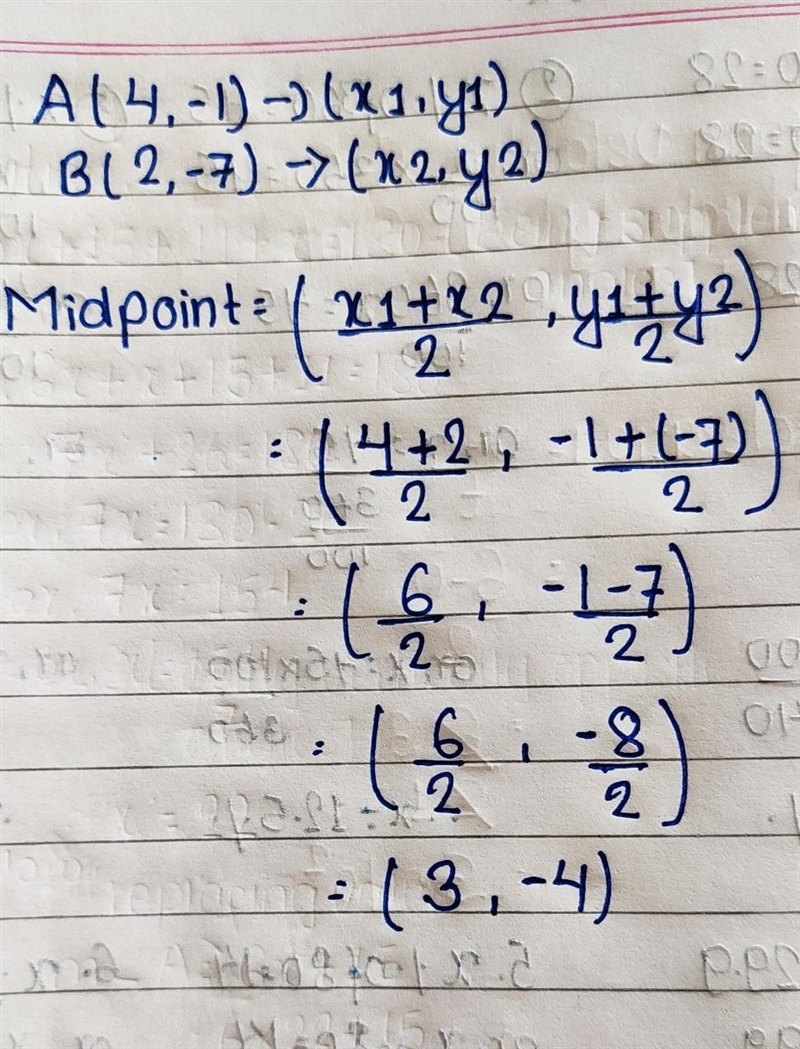 A(4,-1)→(x1,y1)
B(2,-7)→(x2,y2)
Midpoint=(x1+x2/2, y1+y2/2)
=(4+2/2, -1+(-7)/2)
=(6/2, -1-7/2)
=(6/2, -8/2)
=(3,-4)